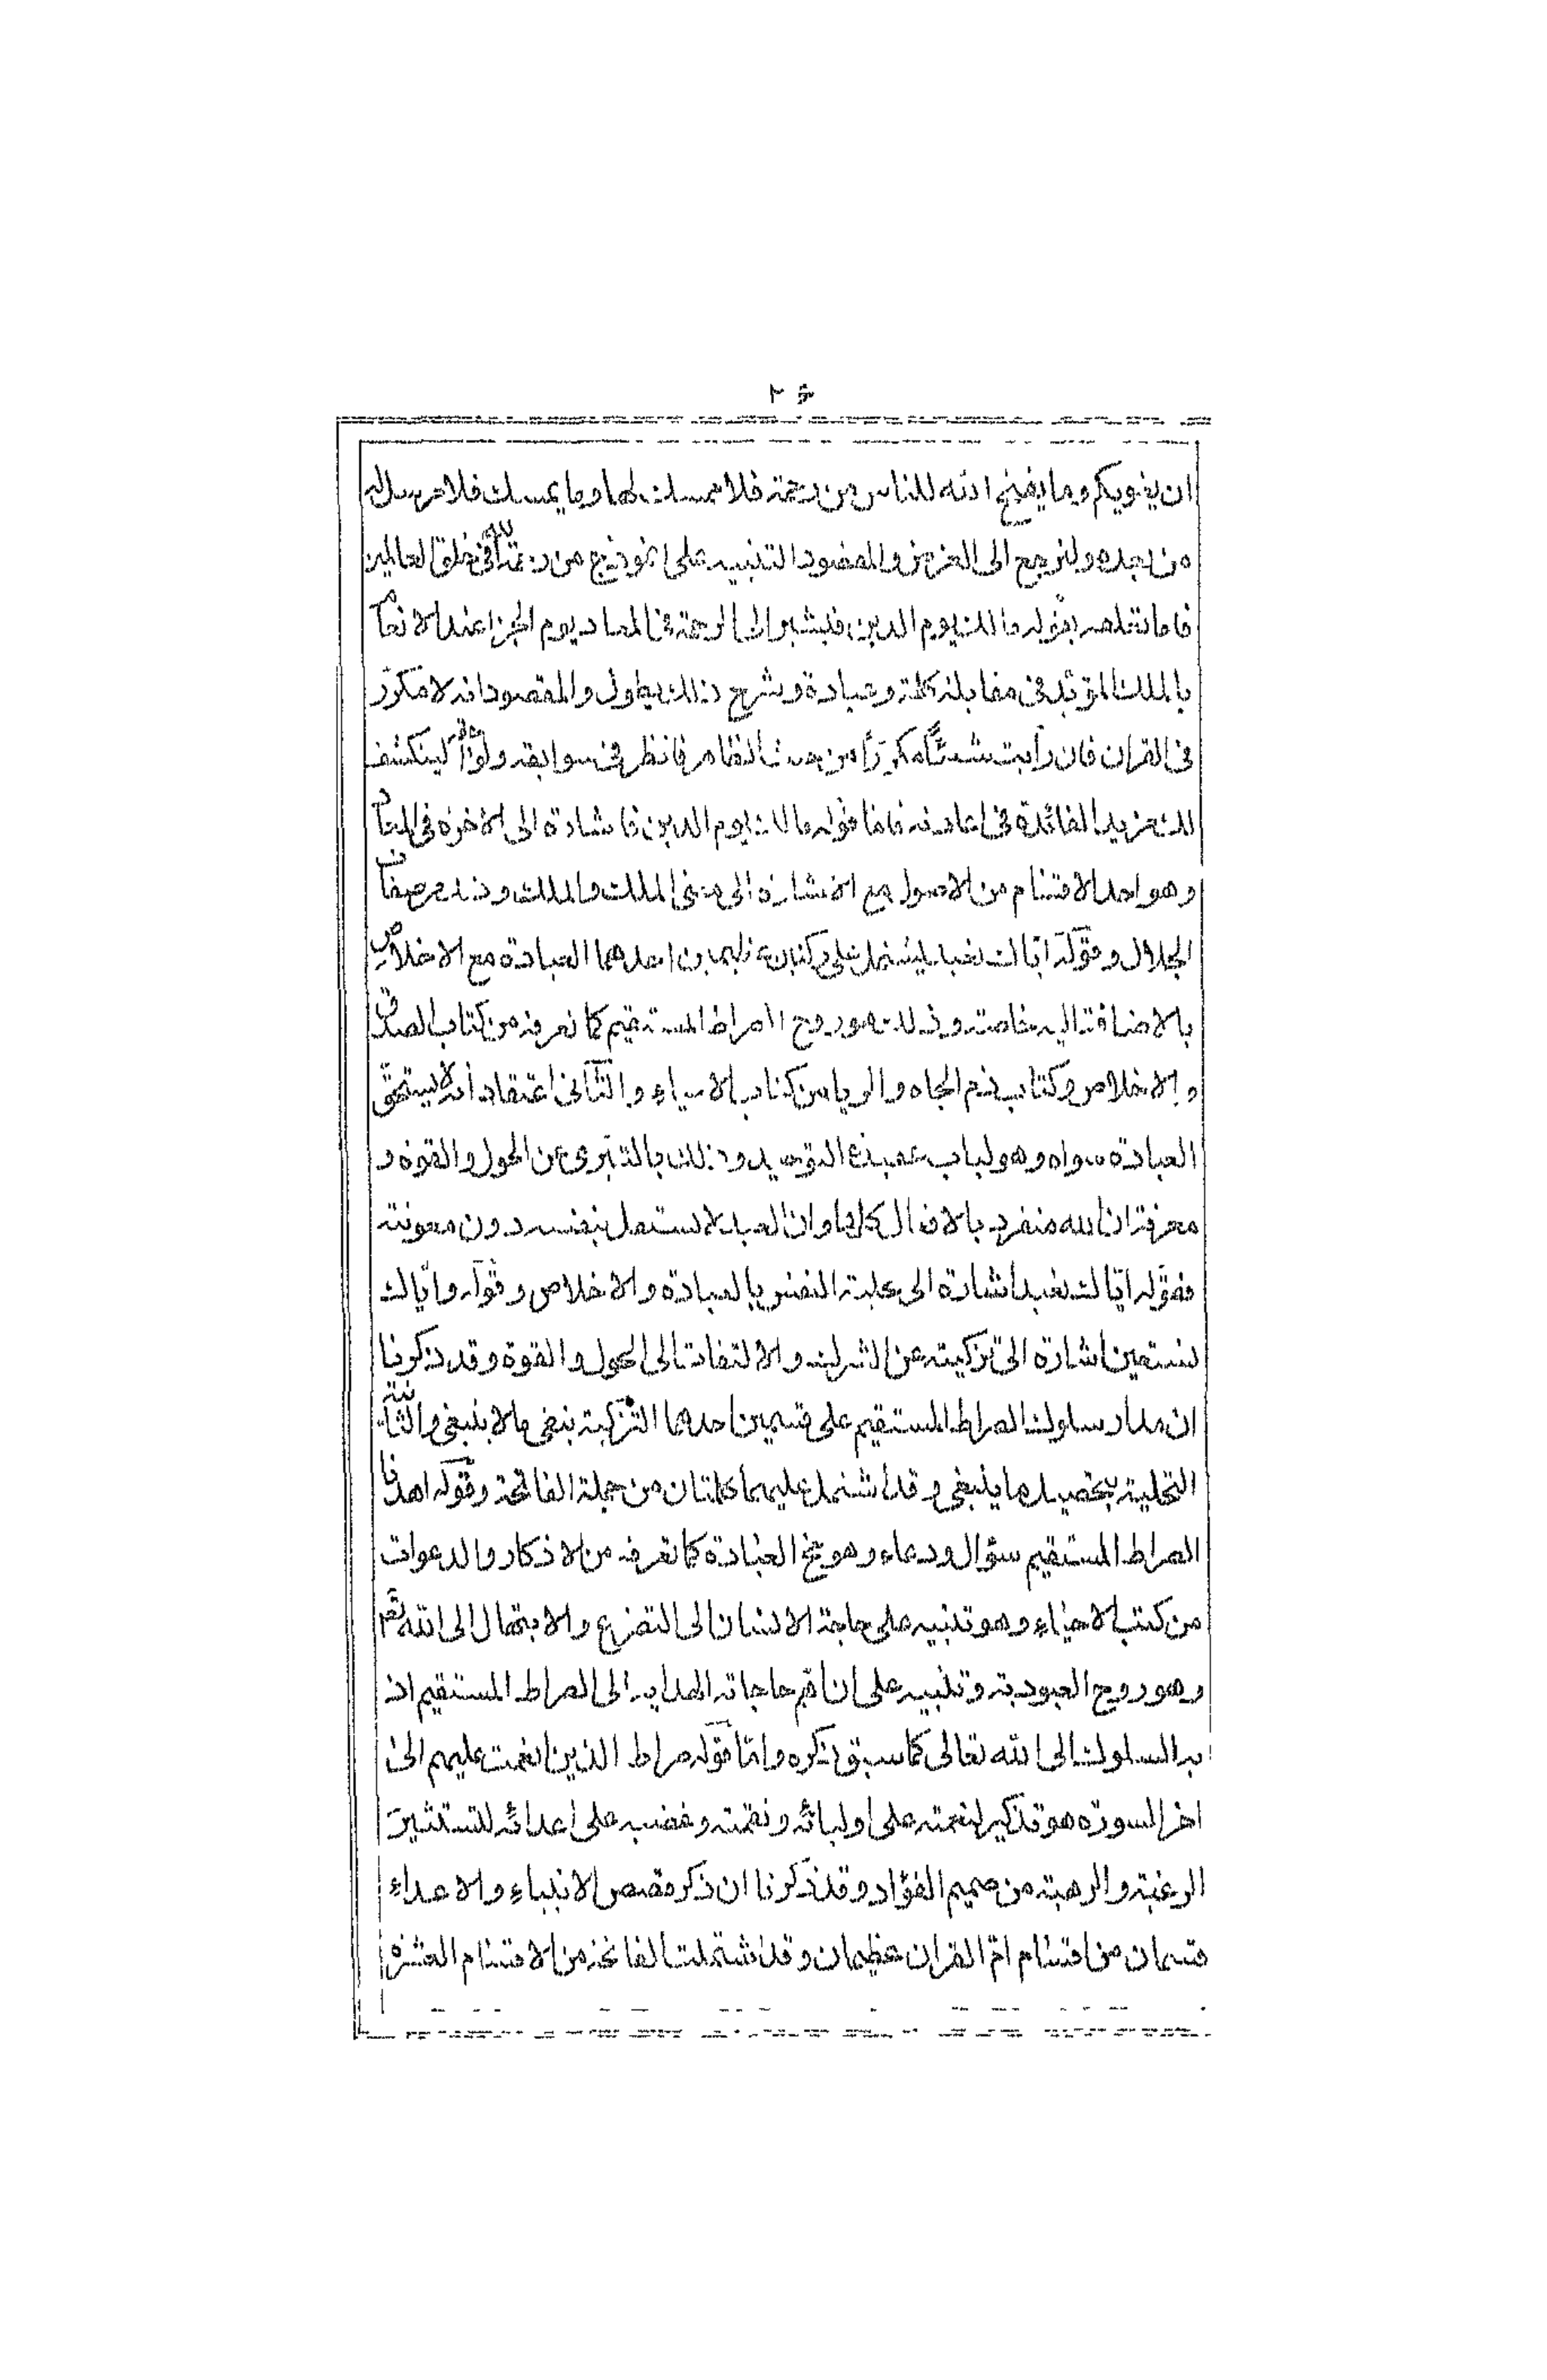 ان يغويكم وما يفتح الله للناس من رحمة فلا ممسك لها وما يمسك فلا مرسل له
من بعده ولنرجع الى الغرض والمقصود التنبيه على انموذج من رحمة الله فى خلق العالمين
فاما تعلقه بقوله مالك يوم الدين فيشير الى الرحمة فى المعاد يوم الجزا عند الانعام
بالملك المؤبد فى مقابلة كلمة وعبادة وشرح ذلك يطول والمقصود انه لا مكرر
فى القران فان رأيت شيئاً مكرراً من حيث الظاهر فانظر فى سوابقه ولواحقه لينكشف
لك مزيد الفائدة فى اعادته فاما قوله مالك يوم الدين فاشارة الى الاخرة فى المعاد
وهو احد الاقسام من الاصول مع الاشارة الى معنى الملك والملك وذلك من صفات
الجلال وقوله اياك نعبد يشتمل على ركنين عظيمين احدهما العبادة مع الاخلاص
بالاضافة اليه خاصة وذلك هو روح الصراط المستقيم كما تعرفه من كتاب الصدق
والاخلاص وكتاب ذم الجاه والريا من كتاب الاحياء والثانى اعتقاد انه لا يستحق
العبادة سواه وهو لباب عقيدة التوحيد وذلك بالتبرى عن الحول والقوة و
معرفة ان الله منفرد بالافعال كلها وان العبد لا يستقل بنفسه دون معونته
فقوله اياك نعبد اشارة الى تحلية النفس بالعبادة والاخلاص وقوله واياك
نستعين اشارة الى تزكيته عن الشرك والالتفات الى الحول والقوة وقد ذكرنا
ان مدار سلوك الصراط المستقيم على قسمين احدهما التزكية بنفى ما لا ينبغى والثانية
التحلية بتحصيل ما ينبغى وقد اشتمل عليهما كلمتان من جملة الفاتحة وقوله اهدنا
الصراط المستقيم سؤال ودعاء وهو مخ العبادة كما تعرفه من الاذكار والدعوات
من كتب الاحياء وهو تنبيه على حاجة الانسان الى التضرع والابتهال الى الله تعم
وهو روح العبودية وتنبيه على ان اهم حاجاته الهداية الى الصراط المستقيم اذ
به السلوك الى الله تعالى كما سبق ذكره واما قوله صراط الذين انعمت عليهم الى
اخر السورة هو تذكير لنعمته على اوليائه ونقمته وغضبه على اعدائه للتستثير
الرغبة والرهبة من صميم الفؤاد وقد ذكرنا ان ذكر قصص الانبياء والاعداء
قسمان من اقسام ام القران عظيمان وقد اشتملت الفاتحة من الاقسام العشرة